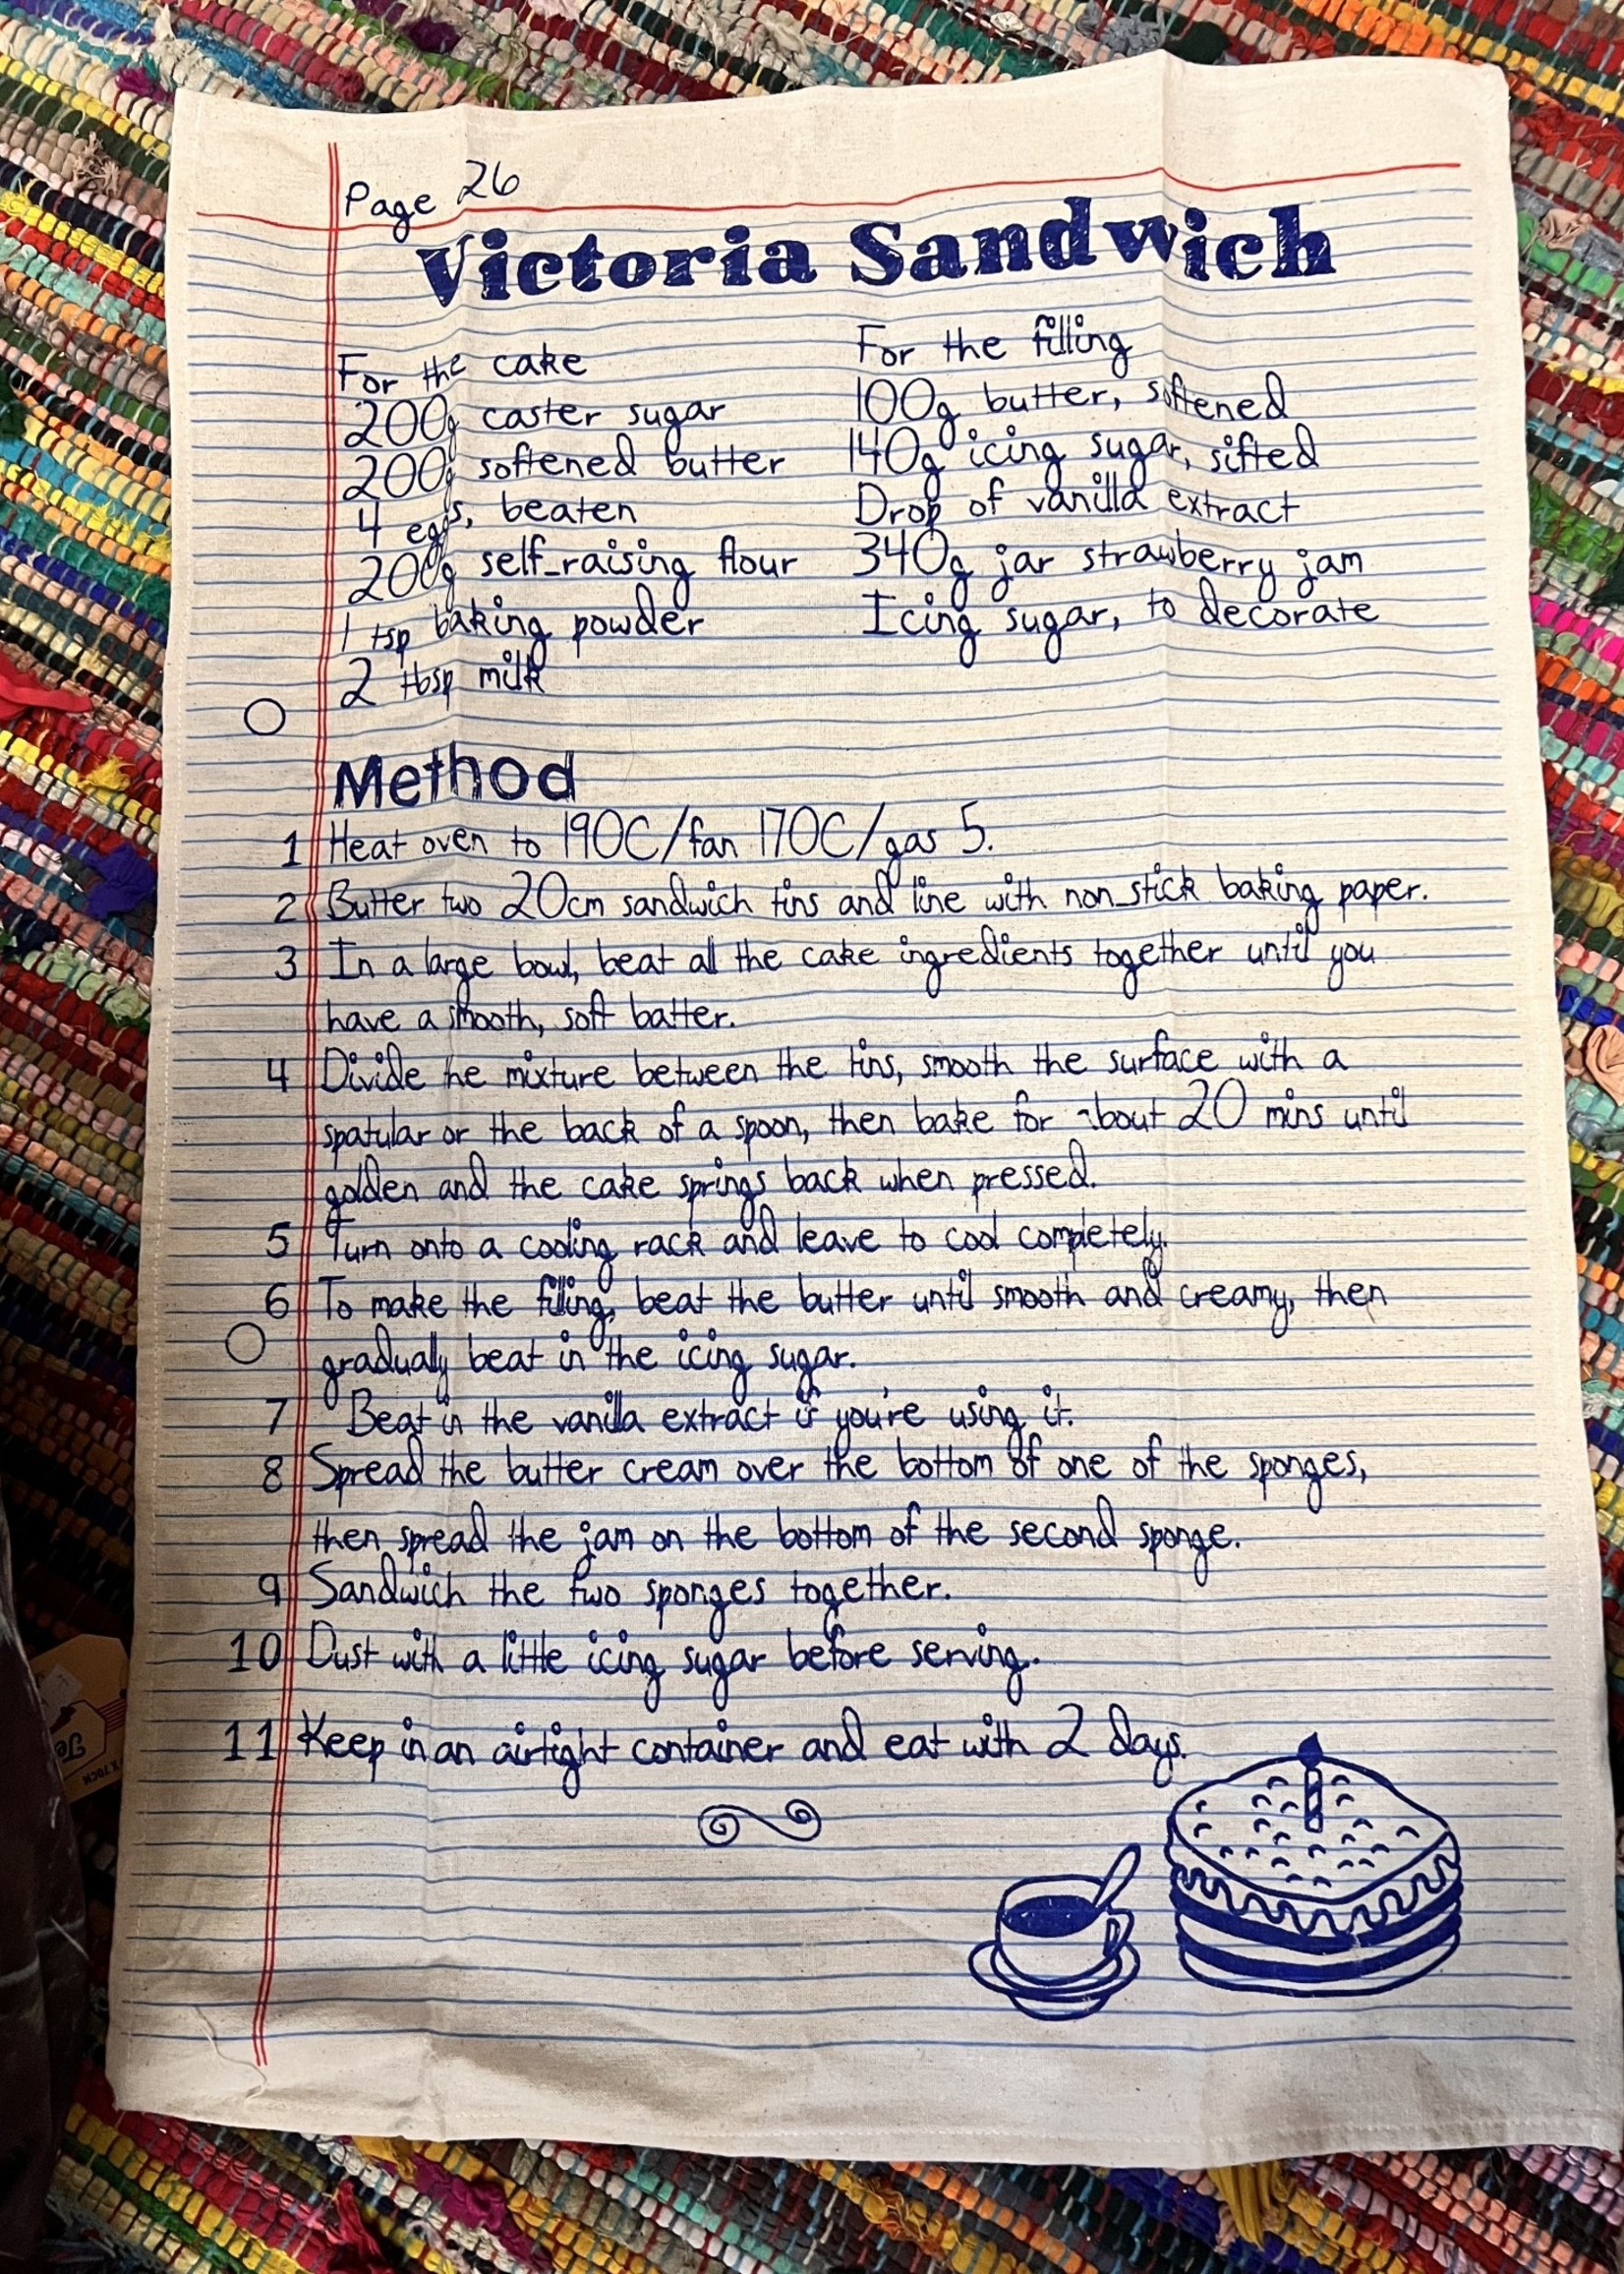 Page 26
Victoria Sandwich
For the cake
200g caster sugar
200g softened butter
4 eggs, beaten
200g self-raising flour
1 tsp baking powder
2 tbsp milk
For the filling
100g butter, softened
140g icing sugar, sifted
Drop of vanilla extract
340g jar strawberry jam
Icing sugar, to decorate
Method
1 Heat oven to 190C/fan 170C/gas 5.
2 Butter two 20cm sandwich tins and line with non-stick baking paper.
3 In a large bowl, beat all the cake ingredients together until you
have a smooth, soft batter.
4 Divide he mixture between the tins, smooth the surface with a
spatular or the back of a spoon, then bake for about 20 mins until
golden and the cake springs back when pressed.
5 Turn onto a cooling rack and leave to cool completely.
6 To make the filling, beat the butter until smooth and creamy, then
gradually beat in the icing sugar.
7 Beat in the vanilla extract if you're using it.
8 Spread the butter cream over the bottom of one of the sponges,
then spread the jam on the bottom of the second sponge.
9 Sandwich the two sponges together.
10 Dust with a little icing sugar before serving.
11 Keep in an airtight container and eat with 2 days.